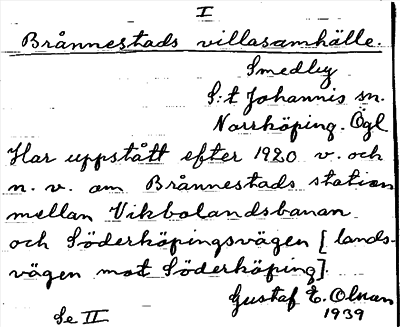 I
Brånnestads villasamhälle.
Smedby
S:t Johannis sn.
Norrköping. Ögl
Har uppstått efter 1920 v. och
n. v. om Brånnestads station
mellan Vikbolandsbanan
och Söderköpingsvägen [lands-
vägen mot Söderköping].
Gustaf E. Olnan
1939
Se II